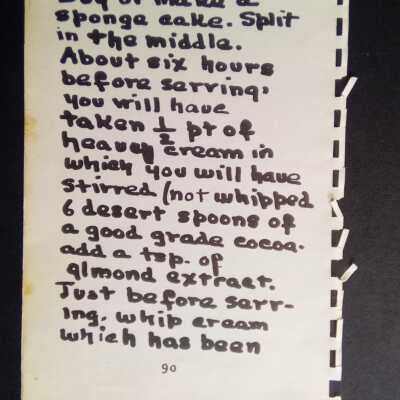 Buy or make a
sponge cake. Split
in the middle.
About six hours
before serving,
you will have
taken ½ pt of
heavey cream in
which you will have
stirred (not whipped
6 desert spoons of
a good grade cocoa.
add a tsp. of
almond extract.
Just before serv-
ing. whip cream
which has been
90